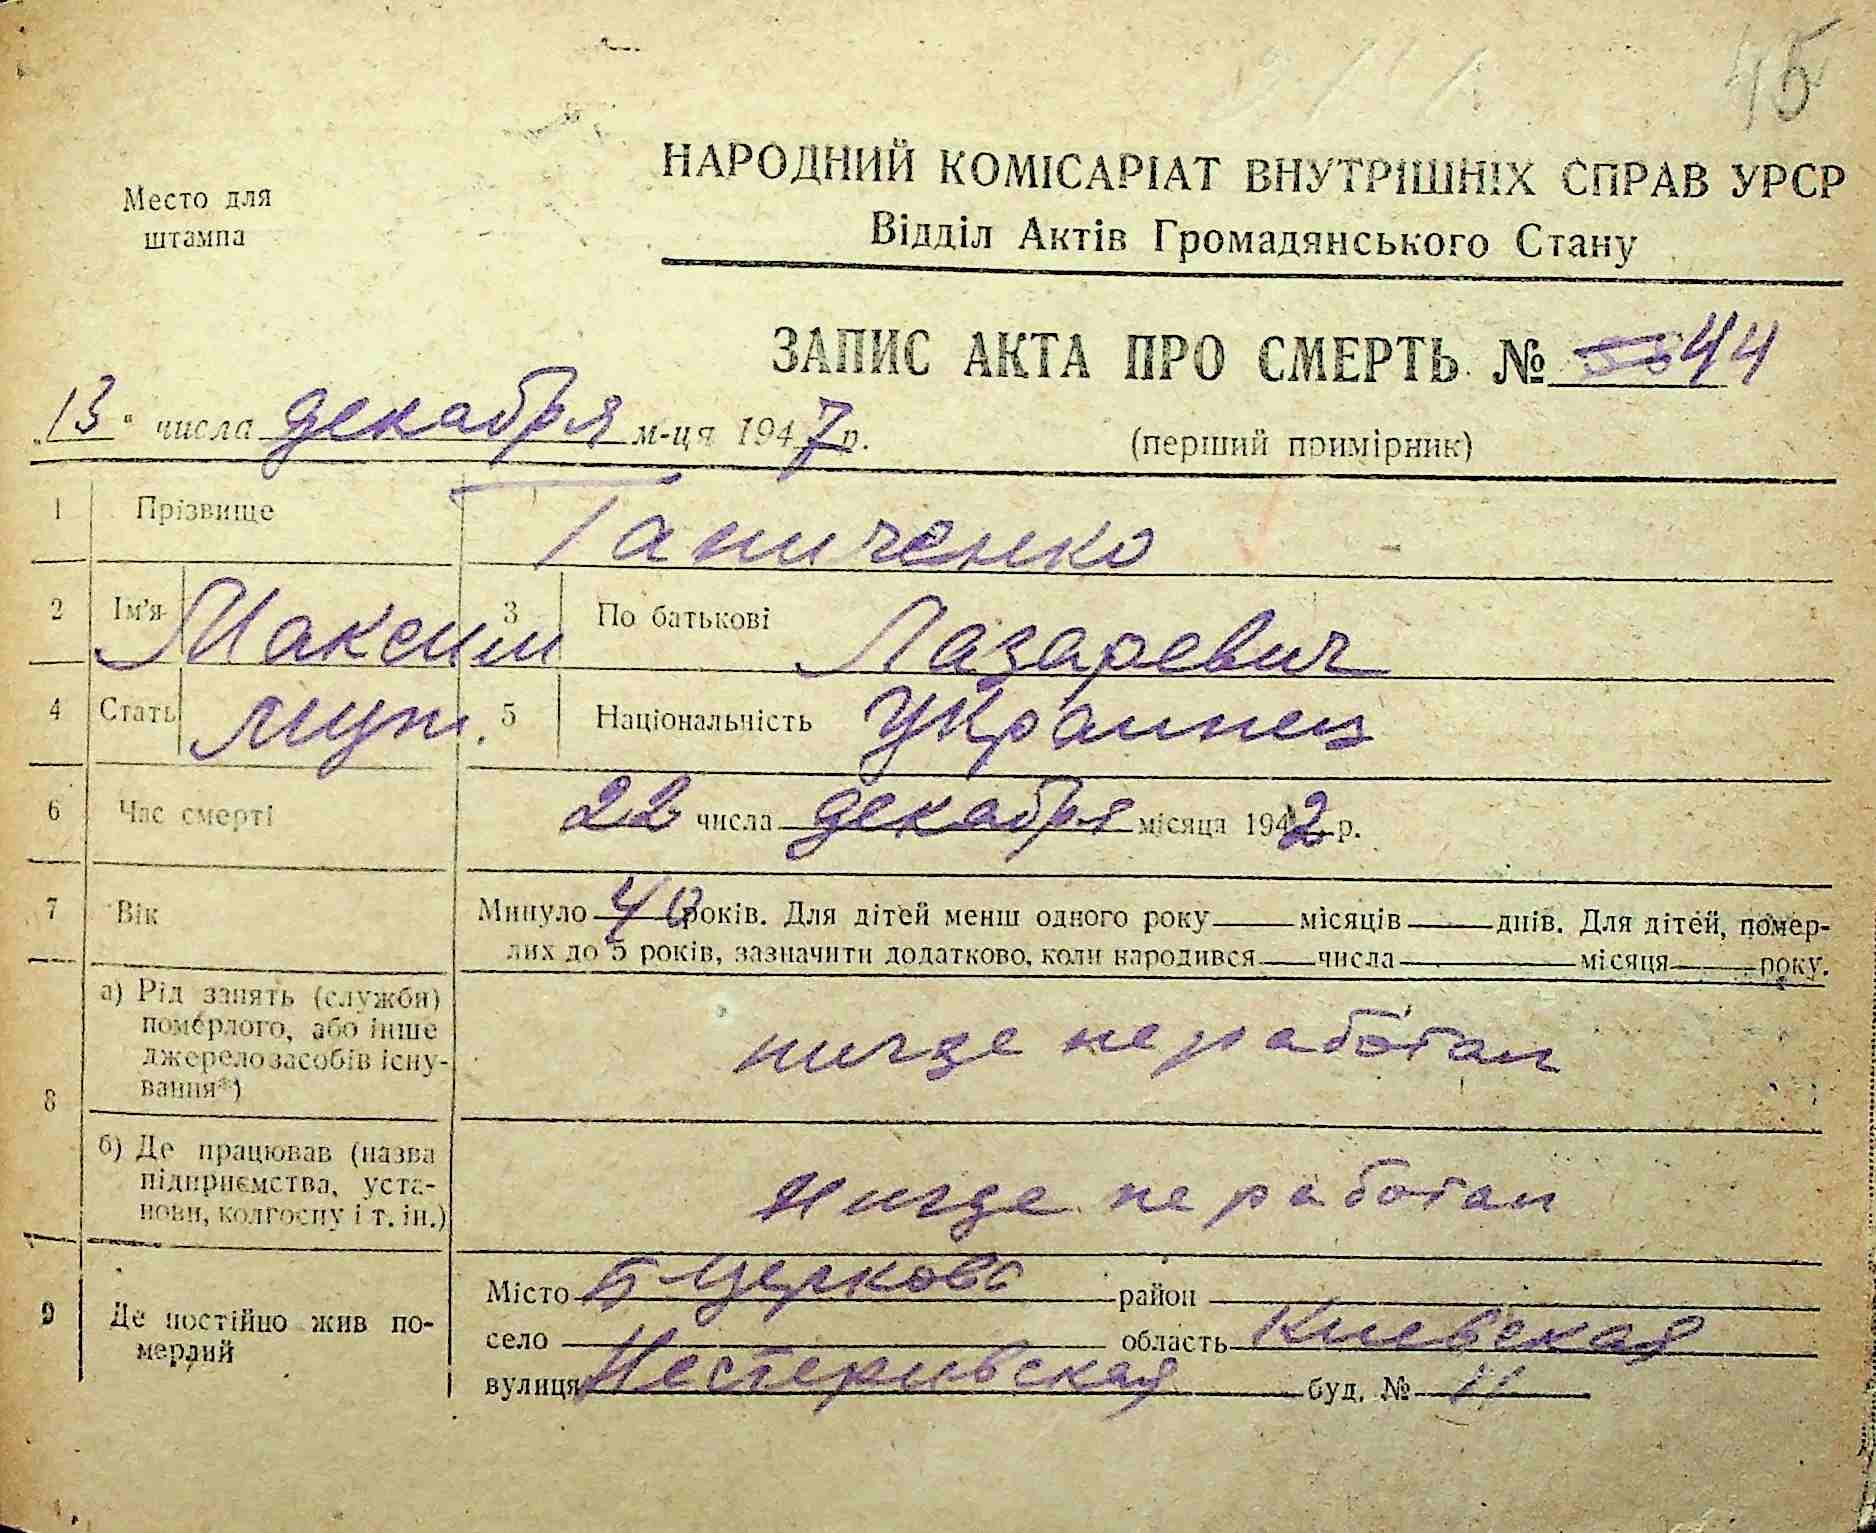 45
Место для
штампа
НАРОДНИЙ КОМІСАРІАТ ВНУТРІШНІХ СПРАВ УРСР
Відділ Актів Громадянського Стану
ЗАПИС АКТА ПРО СМЕРТЬ № 44
„13“ числа декабря м-ця 1947 р.
(перший примірник)
1 Прізвище Ганиченко
2 Ім'я Максим 3 По батькові Лазаревич
4 Стать муж. 5 Національність Украинец
6 Час смерті 22 числа декабря місяца 1942 р.
7 Вік Минуло 40 років. Для дітей менш одного року місяців днів. Для дітей, помер-
лих до 5 років, зазначити додатково, коли народився числа місяця року.
8 а) Рід занять (служби)
померлого, або інше
джерело засобів існу-
вання*)
нигде не работал
б) Де працював (назва
підприємства, уста-
нови, колгоспу і т. ін.)
Нигде не работал
9 Де постійно жив по-
мерлий
Місто Б Церковь район
село область Киевская
вулиця буд. № 11